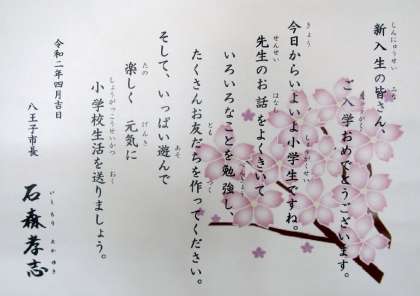 新入生の皆さん、
ご入学おめでとうございます。
今日からいよいよ小学生ですね。
先生のお話をよくきいて
いろいろなことを勉強し、
たくさんお友だちを作ってください。
そして、いっぱい遊んで
楽しく元気に
小学校生活を送りましょう。
令和二年四月吉日
八王子市長
石森孝志